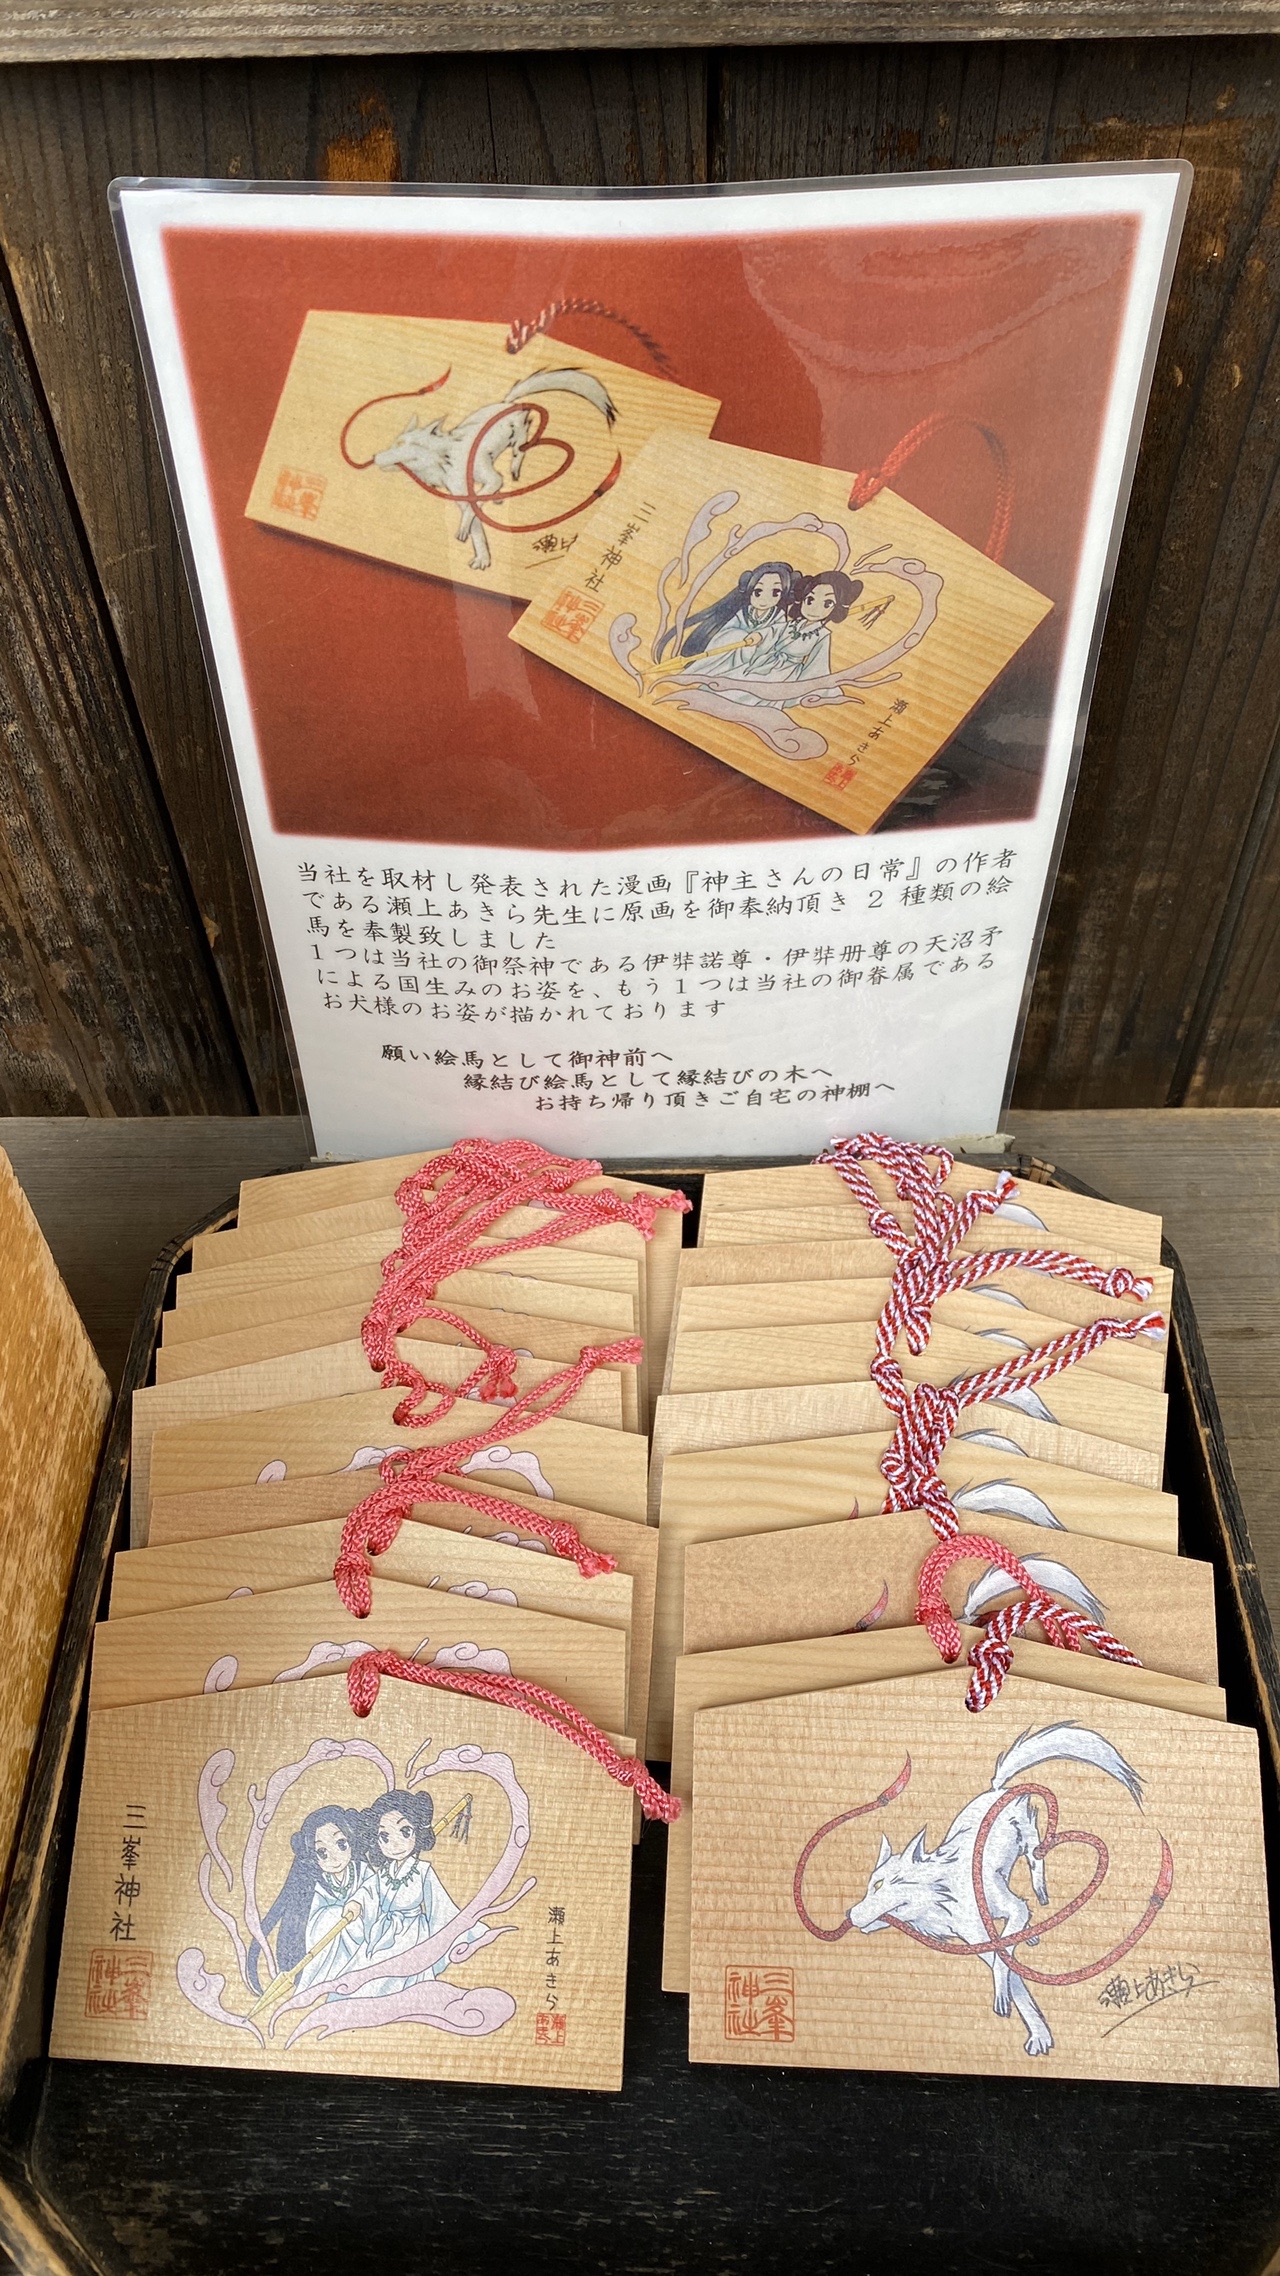 三峯神社
瀬上
三峯神社
三峯神社
瀬上あきら
瀬上
当社を取材し発表された漫画『神主さんの日常』の作者
である瀬上あきら先生に原画を御奉納頂き 2 種類の絵
馬を奉製致しました
1つは当社の御祭神である伊弉諾尊・伊弉册尊の天沼矛
による国生みのお姿を、もう1つは当社の御眷属である
お犬様のお姿が描かれております
願い絵馬として御神前へ
縁結び絵馬として縁結びの木へ
お持ち帰り頂きご自宅の神棚へ
三峯神社
三峯神社
瀬上あきら
三峯神社
瀬上あきら